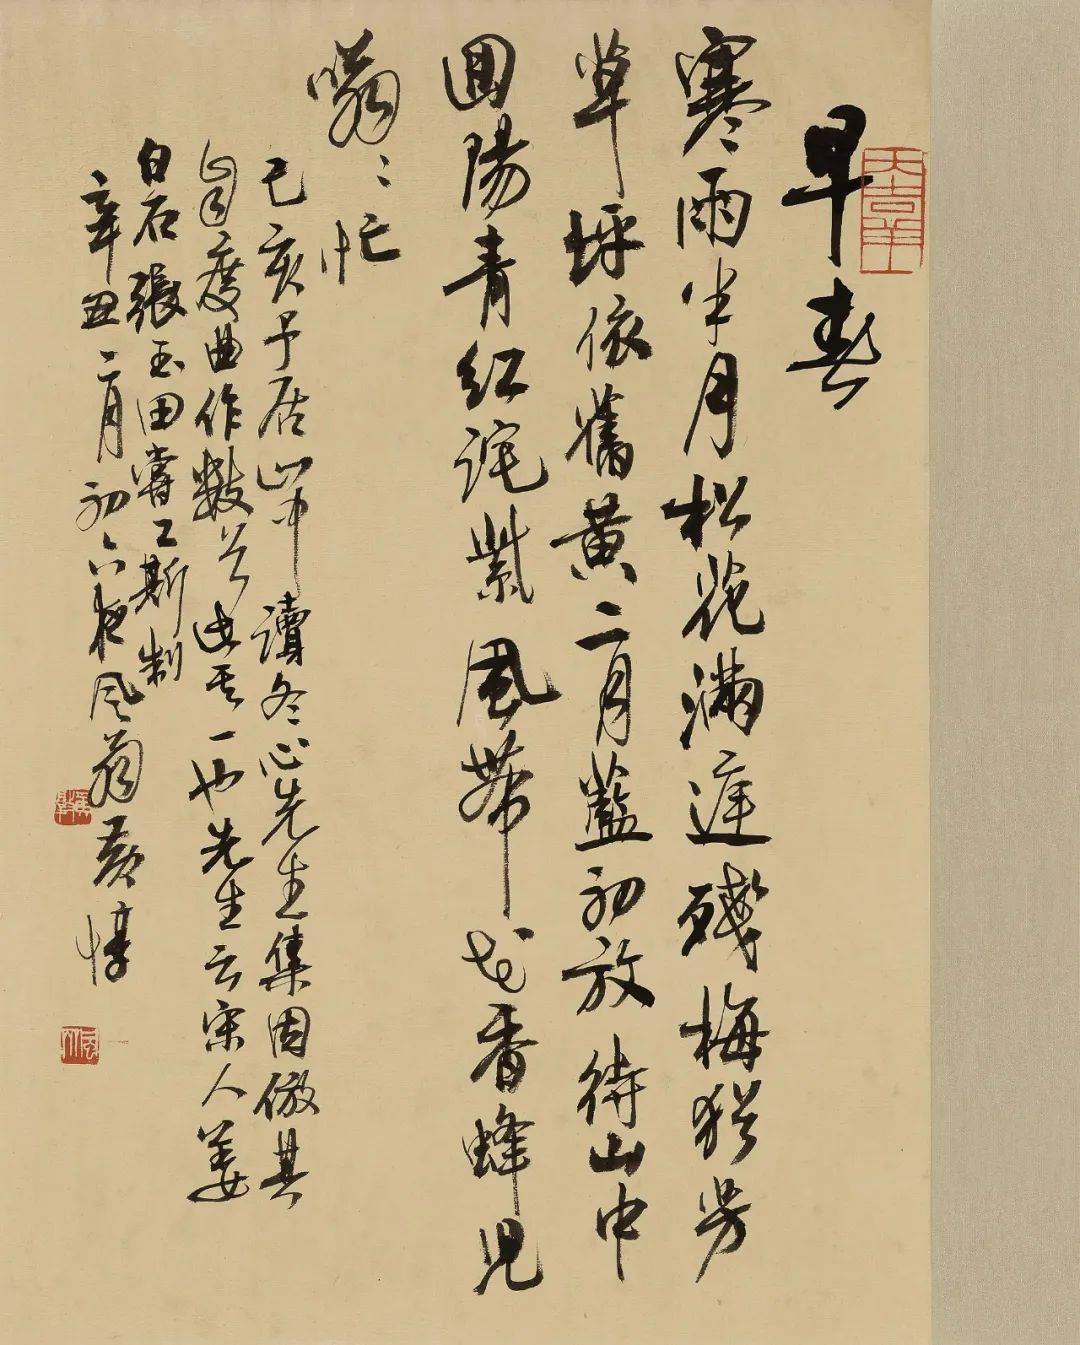 早春
寒雨半月松花滿庭殘梅猶芳
草坪依舊黃二月藍初放待山中
回陽青紅詫紫風帶弋香蜂兒
嗡〻忙
己亥予居山中讀冬心先生集因仿其
自度曲作數首此其一也先生云宋人姜
白石張玉田嘗工斯制
辛丑二月初六夜風翁黃惇
大吉羊